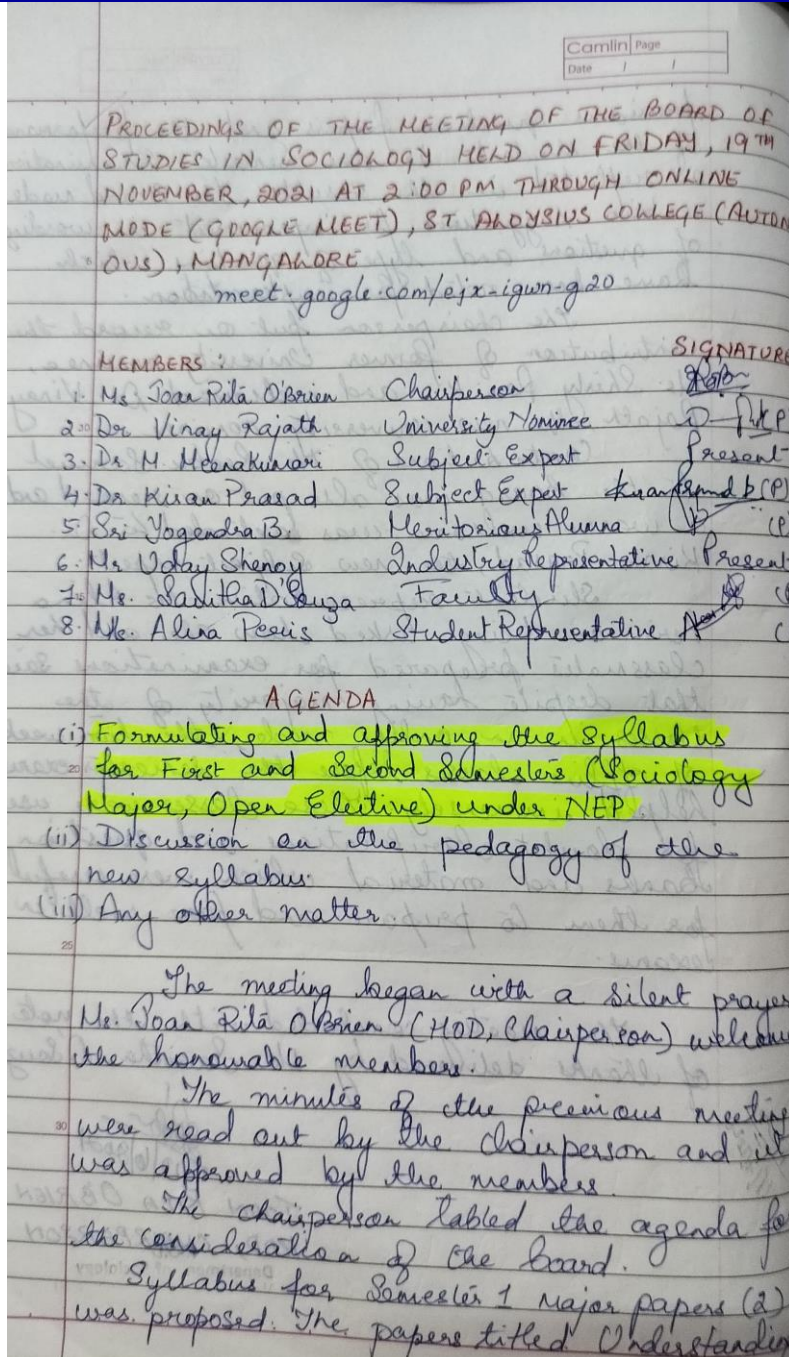 Camlin Page
Date / /
PROCEEDINGS OF THE MEETING OF THE BOARD OF
STUDIES IN SOCIOLOGY HELD ON FRIDAY, 19TH
NOVEMBER, 2021 AT 2:00 PM THROUGH ONLINE
MODE (GOOGLE MEET), ST ALOYSIUS COLLEGE (AUTON
OUS), MANGALORE
meet.google.com/ejx-igwn-g20
MEMBERS: SIGNATURE
1. Ms Joan Rita O'Brien Chairperson
2. Dr Vinay Rajath University Nominee
3. Dr M. Meenakumari Subject Expert Present
4. Dr Kiran Prasad Subject Expert (P)
5. Sri Yogendra B. Meritorious Alumna
6. Mr Uday Shenoy Industry Representative Present
7. Ms. Savitha D'Souza Faculty
8. Ms. Alina Peris Student Representative
AGENDA
(i) Formulating and approving the Syllabus
20 for First and Second Semesters (Sociology
Major, Open Elective) under NEP.
(ii) Discussion on the pedagogy of the
new syllabus.
(iii) Any other matter.
25
The meeting began with a silent prayer
Ms. Joan Rita O'Brien (HOD, Chairperson) welcom
the honourable members.
The minutes of the previous meeting
30 were read out by the chairperson and it
was approved by the members.
The chairperson tabled the agenda fo
the consideration of the board.
Syllabus for Semester 1 Major papers (2)
was proposed. The papers titled Understandin